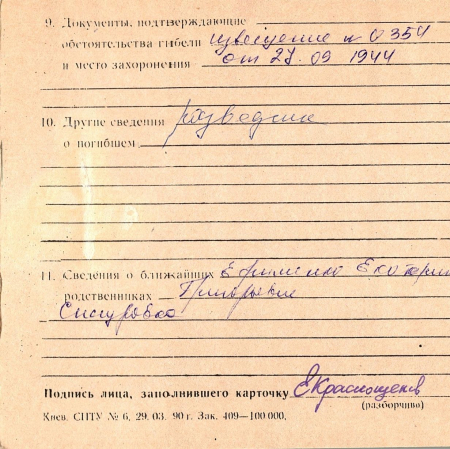 9. Документы, подтверждающие
обстоятельства гибели извещение № 0354
и место захоронения от 27.09 1944
10. Другие сведения разведчик
о погибшем
11. Сведения о ближайших Ефименко Екатерин
родственниках
Снигуровка
Подпись лица, заполнившего карточку Е Краснощеков
(разборчиво)
Киев. СПТУ № 6, 29. 03. 90 г. Зак. 409—100 000.